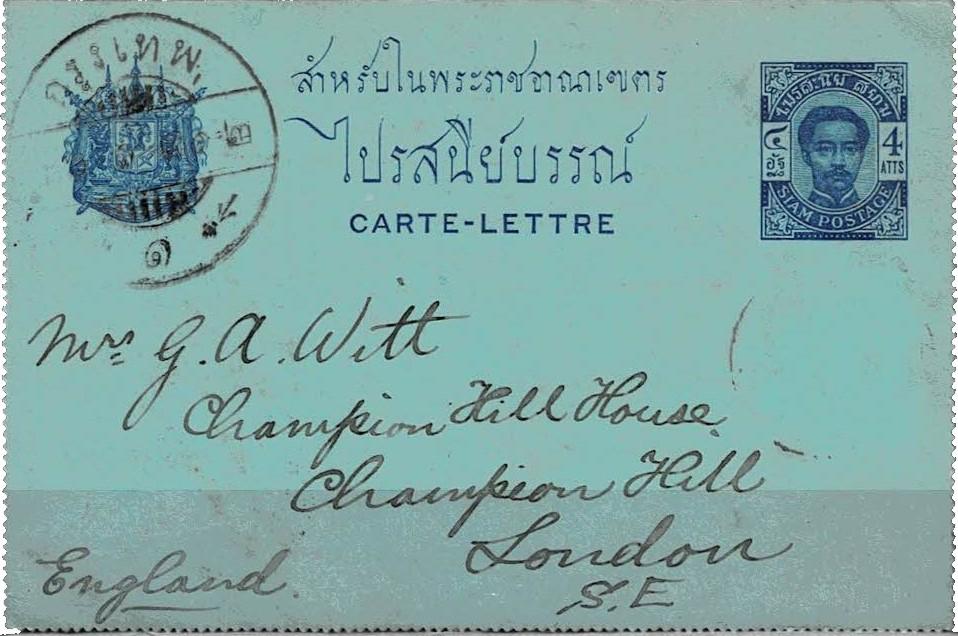 กรุงเทพ
๑
สำหรับในพระราชอาณาเขตร
ไปรสนีย์บรรณ์
CARTE-LETTRE
๔
อัฐ
4
ATTS
SIAM POSTAGE
Mrs G. A. Witt
Champion Hill House
Champion Hill
London
S.E
England.